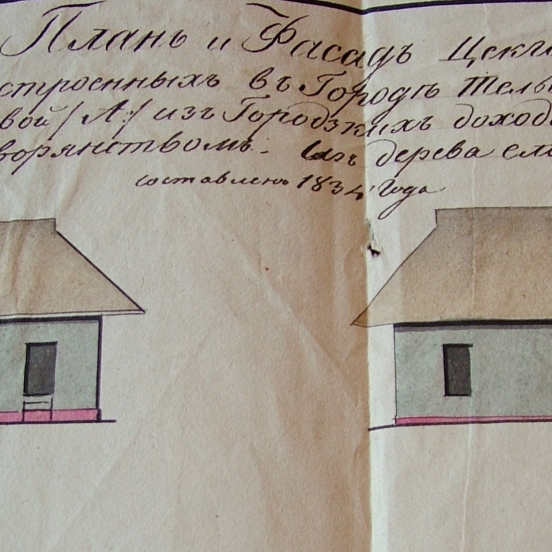 Планъ и Фасадъ Цекга
строенныхъ въ Городѣ Тель
вой /:А:/ изъ Городзкихъ дохода
ворянствомъ. изъ дерева ело
составленъ 1834 Года